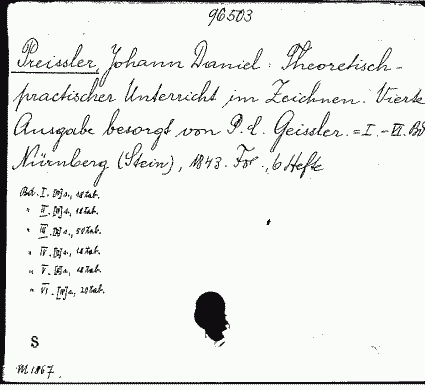 96503
Preissler, Johann Daniel: Theoretisch-
practischer Unterricht im Zeichnen. Vierte
Ausgabe besorgt von P. d. Geissler. = I. - VI. Bd
Nürnberg (Stein), 1843. Fol., 6 Hefte
Bd. I. [IV] s., 18 Tab.
" II. [II] s., 18 Tab.
" III. [II] s., 50 Tab.
" IV. [II] s., 18 Tab.
" V. [II] s., 18 Tab.
" VI. [IV] s., 20 Tab.
S
M 1867.